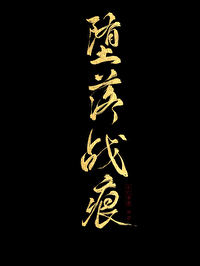 堕落战痕